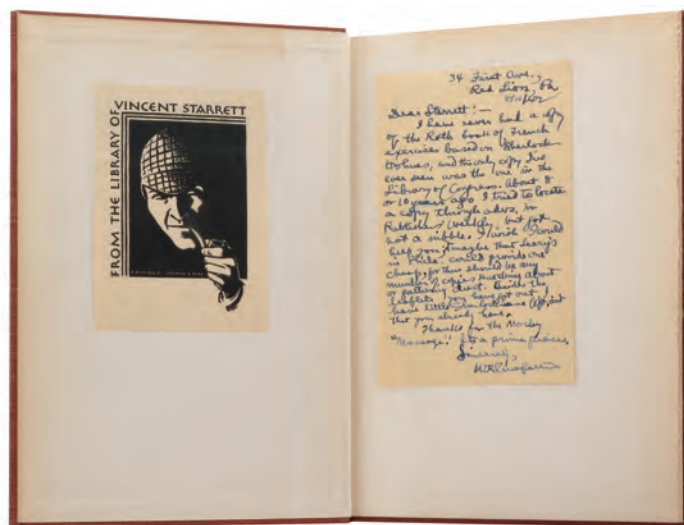 FROM THE LIBRARY OF VINCENT STARRETT
34 First Ave.,
Red Lion, Pa
Dear Starrett:—
I have never had a copy
of the Roth book of French
exercises based on Sherlock
Holmes, and the only copy I've
ever seen was the one in the
Library of Congress. About 8
or 10 years ago I tried to locate
a copy through advs. in
Publishers' Weekly, but got
not a nibble. I wish I could
help you; maybe that Leary's
in Phila. could provide one
cheap, for there should be any
number of copies knocking about
or gathering dust. Besides the
leaflets you have got out, I
have little
that you already have.
Thanks for the Morley
"Message." It's a prime
Sincerely,